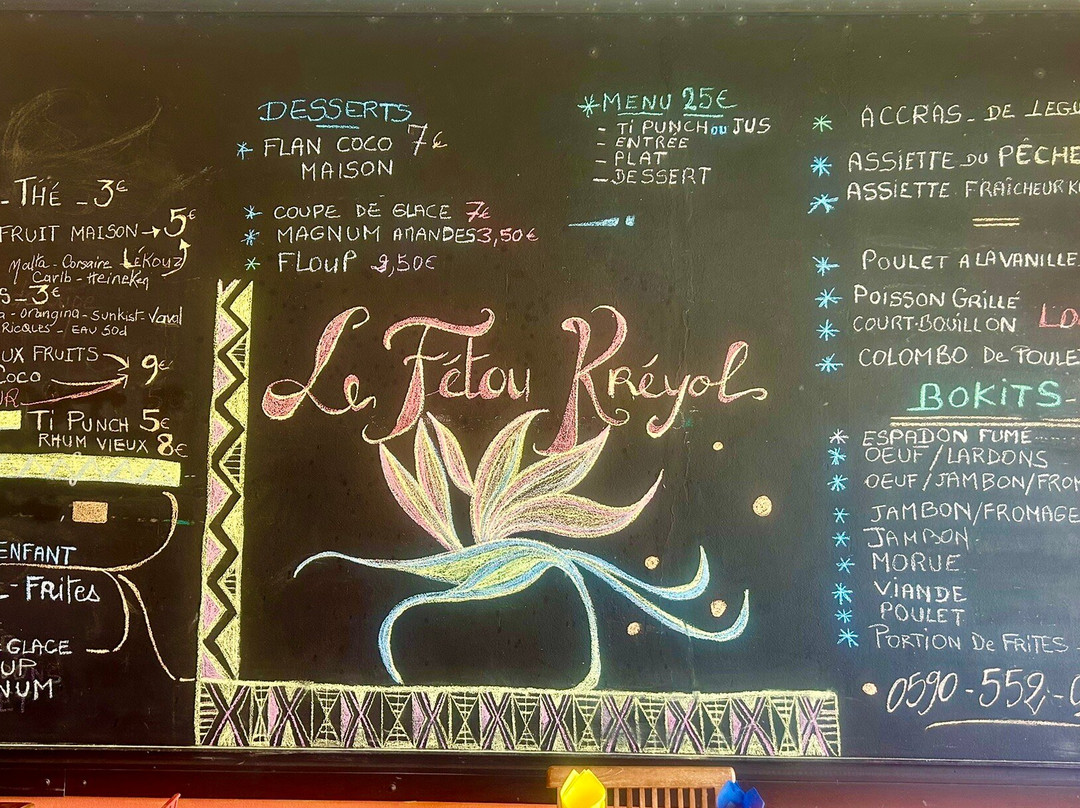 THÉ - 3€
FRUIT MAISON → 5€
Malta - Corsaire - LÉKOUZ
Carib - Heineken
S - 3€
a - Orangina - Sunkist - Vaval
RICQUES - EAU Sod
UX FRUITS
COCO
9€
UR
TI PUNCH 5€
RHUM VIEUX 8€
ENFANT
- FRITES
GLACE
UP
NUM
DESSERTS
* FLAN COCO 7€
MAISON
* COUPE DE GLACE 7€
* MAGNUM AMANDES 3,50€
* FLOUP 2,50€
* MENU 25€
- TI PUNCH ou JUS
- ENTRÉE
- PLAT
- DESSERT
Le Fétou Kréyol
* ACCRAS - DE LEGU
* ASSIETTE DU PÊCHE
* ASSIETTE FRAÎCHEUR K
* POULET A LA VANILLE
* POISSON GRILLÉ
* COURT-BOUILLON
* COLOMBO De POULE
BOKITS -
* ESPADON FUMÉ
* OEUF/LARDONS
* OEUF/JAMBON/FROM
* JAMBON/FROMAGE
* JAMBON
* MORUE
* VIANDE
* POULET
* PORTION De FRITES
0590-552-